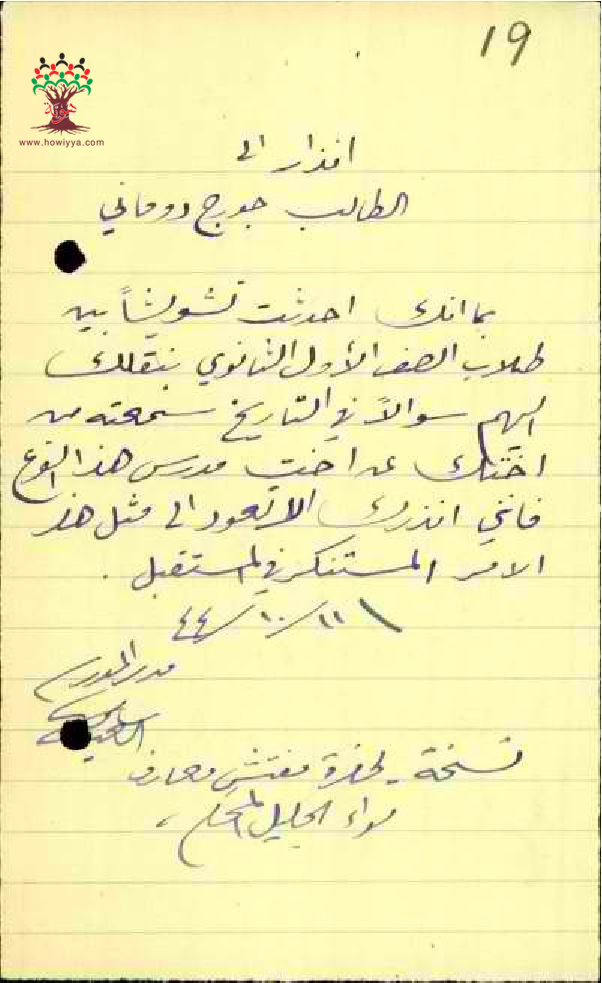 19
www.howiyya.com
انذار الى
الطالب جورج دوماني
بما انك احدثت تشويشاً بين
طلاب الصف الأول الثانوي بنقلك
اليهم سوالاً في التاريخ سمعته من
اختك عن اخت مدرس هذا النوع
فانني انذرك الا تعود الى مثل هذا
الامر المستنكر في المستقبل .
١١/١٠/٤٤
مدير المدرسة
نسخة لحضرة مفتش معارف
لواء الجليل المحترم